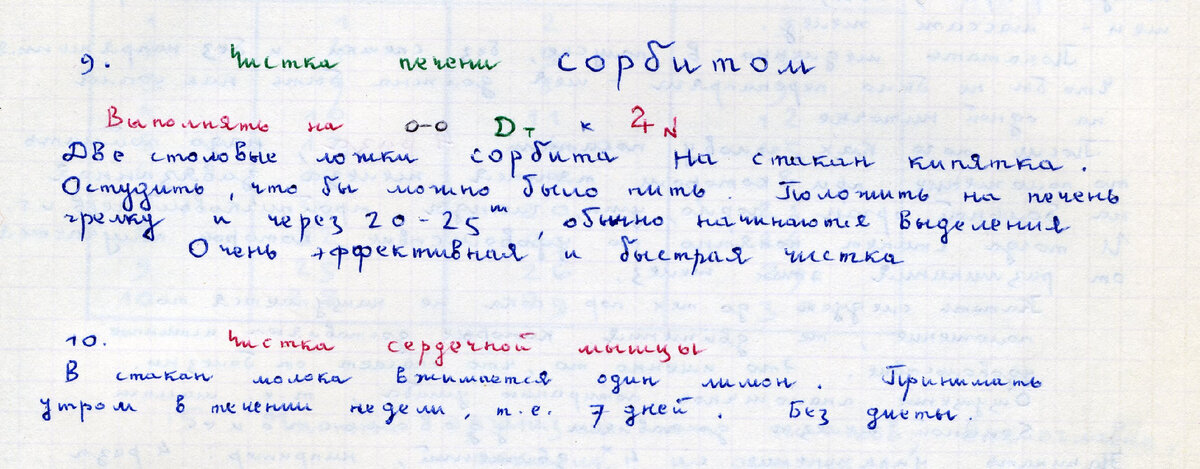 9. Чистка печени сорбитом
Выполнять на о-о Dт к 24 N
Две столовые ложки сорбита на стакан кипятка.
Остудить, что бы можно было пить. Положить на печень
грелку и через 20-25 m, обычно начинаются выделения
Очень эффективная и быстрая чистка
10. Чистка сердечной мышцы
В стакан молока вжимается один лимон. Принимать
утром в течении недели, т.е. 7 дней. Без диеты.